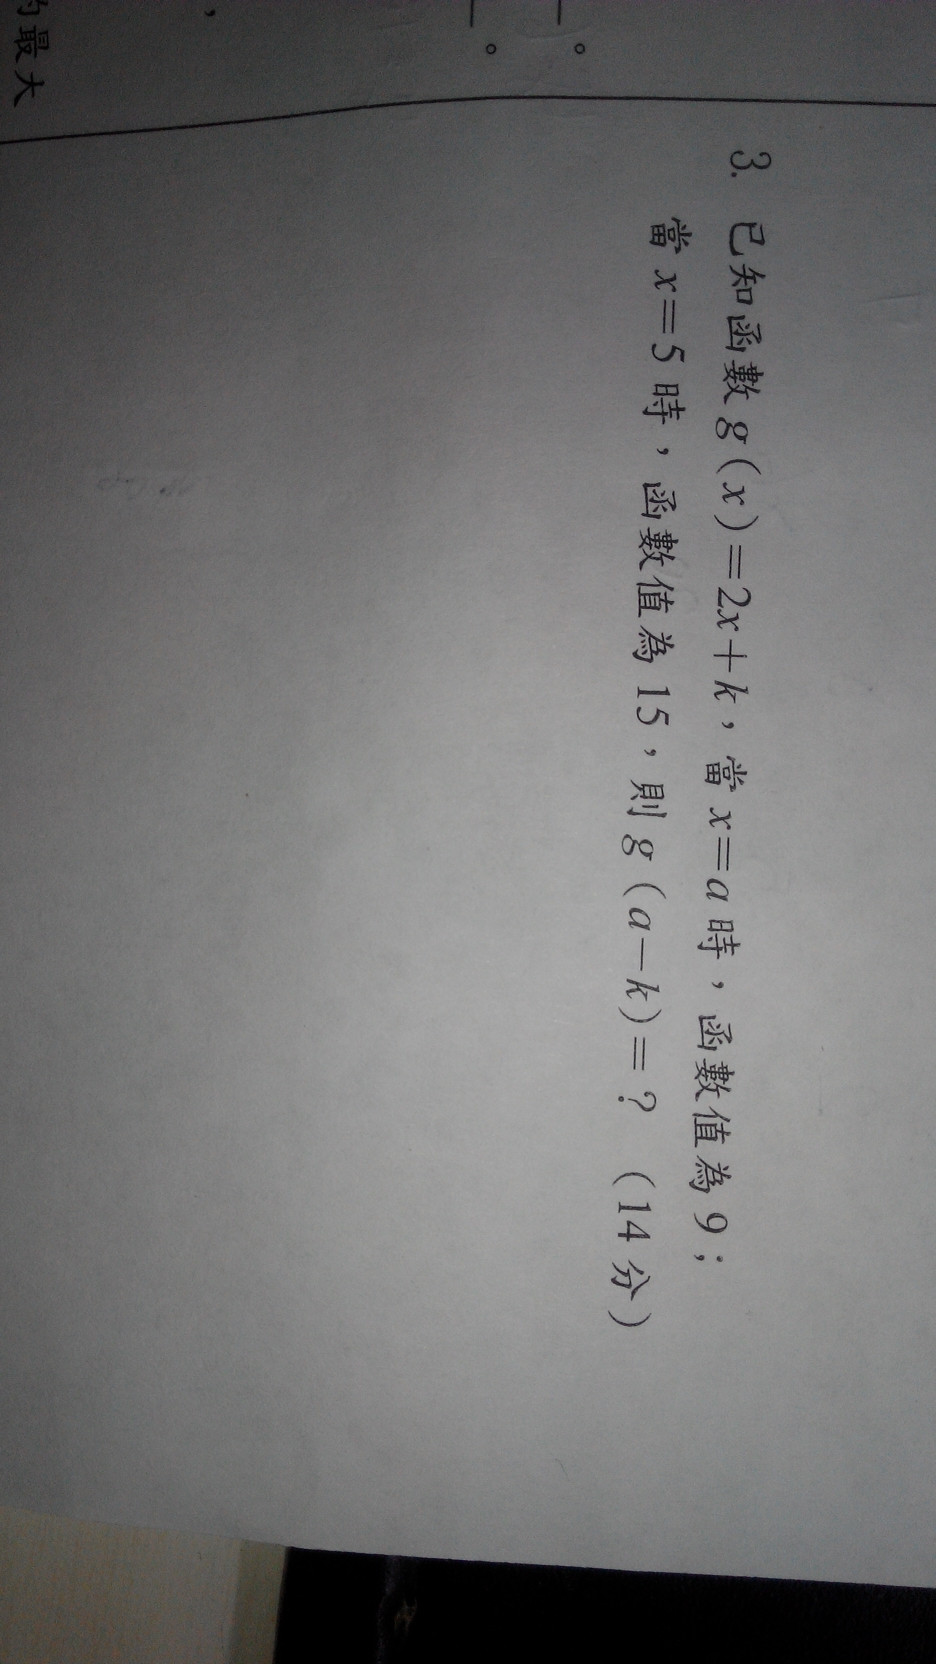 3. 已知函數 g(x)=2x+k,當 x=a 時,函數值為 9;
當 x=5 時,函數值為 15,則 g(a-k)=? (14 分)
。
。
,
的最大